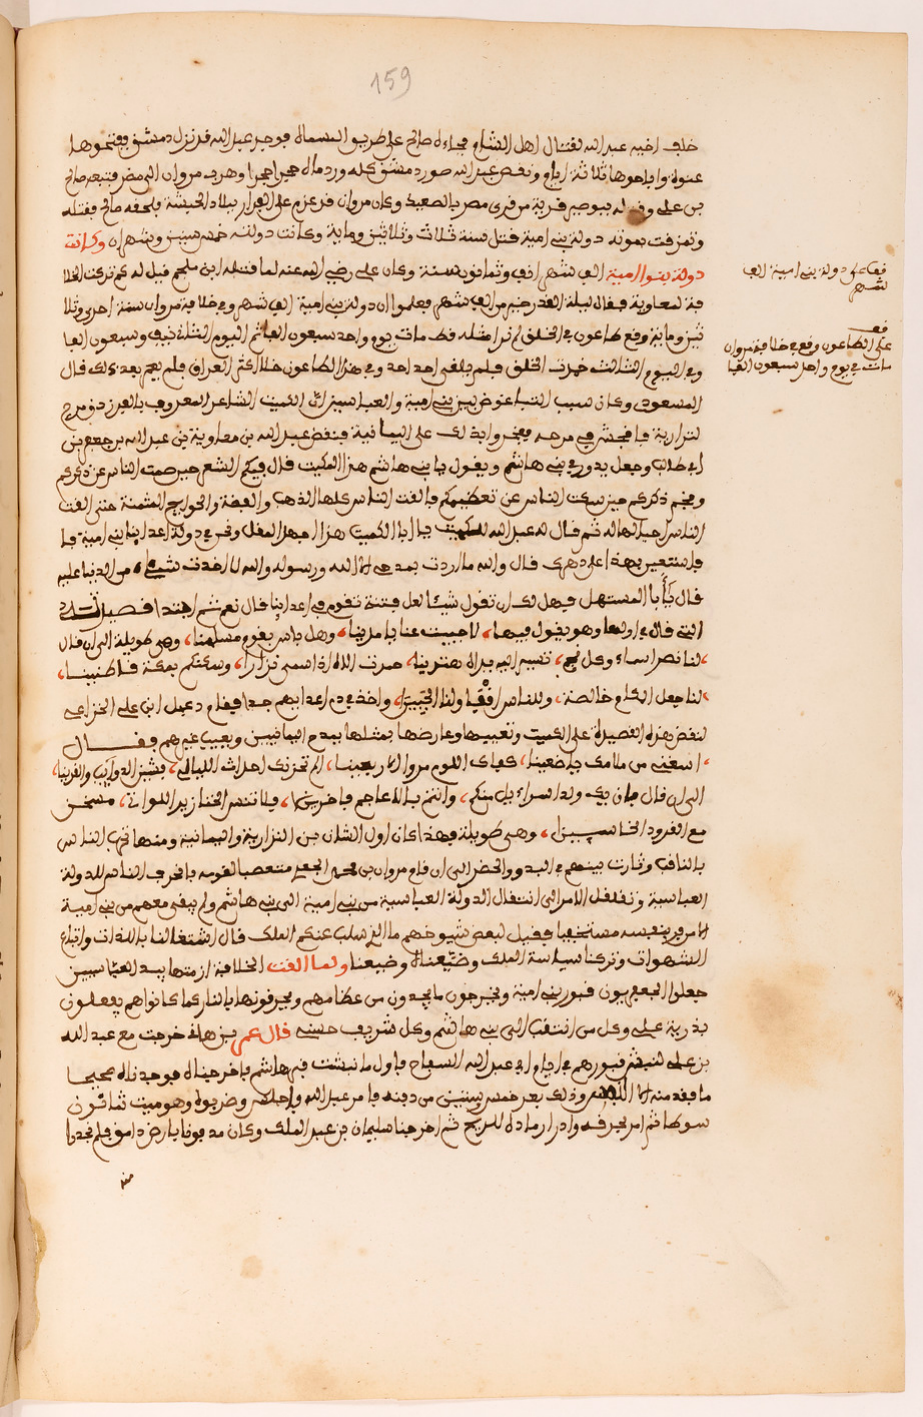 159
خلف اخيه عبد الله لقتال اهل الشام فجاءه صالح على طريق السماوة فوجد عبد الله قد نزل دمشق ففتحوها
عنوة واباحوها ثلاثة ايام ونقض عبد الله صور دمشق كله ورد ماله حجرا حجرا وهرب مروان الى مصر فتبعه صالح
بن على وقتله ببوصير قرية من قرى مصر بالصعيد وكان مروان قد عزم على الفرار ببلاد الحبشة فلحقه صالح فقتله
وتمزقت بموته دولة بنى امية فتل سنة ثلاث وثلاثين وماية وكانت دولته خمس سنين وشهران وكانت
دولة بنوا امية الف شهر اثنى وثمانون سنة وكان على رضى الله عنه لما قتله ابن ملجم فيل له كم تركت الخلا
فة لمعاوية فقال ليلة القدر خير من الف شهر فعلموا ان دولة بنى امية الف شهر وفى خلافة مروان سنة احدى وثلا
ثين وماية وقع طاعون فى الخلق لم ير مثله قط مات يوم واحد سبعون الفا ثم اليوم الثانى نيف وسبعون الفا
وفى اليوم الثالث خمدت الخلق فلم يلفى احد احد وفى هذا الطاعون خلا اكثر العراق فلم يعمر بعد ذلك قال
المسعودى وكان سبب التباغض بين بنى امية والعباسيين ان الكميت الشاعر المعروف بالفرزدق مدح
لنزارية فافحش فى مدحه فجروا بذلك على اليمانية فنقض عبد الله بن معاوية بن عبد الله بن جعفر بن
ابى طالب وجعل يدور فى بنى هاشم ويقول يا بنى هاشم هذا الكميت قال فيكم الشعر حين صمت الناس عن ذكركم
الناس حيلالها له ثم قال له عبد الله للكميت يا ابا الكميت هذا اجهد المقل ونحن فى دولة اعداينا بنى امية فا
فاستعين بهذا على دهرك قال والله ما اردت بمدحى الا الله ورسوله والله لا اخذت شيئا من الدنيا عليه
قال يا أبا المستهل فهل لك ان تقول شيئا لعل فتنة تقوم فى اعداينا قال نعم ثم ابتدا قصيدته
التى قال فى اولها وهو يقول فيها، الا حييت عنا يا مدينا، وهل باس بقوم مسلمينا، وهى طويلة الى ان قال
لنا قمر السماء وكل نجم، تشير اليه يد المهتدينا، وجدت الله اذ اسمى نزارا، وسكنكم بمكة قاطنينا،
لنا جعل المكارم خالصة، وللناس القفا ولنا الجبينا، واخذ فى ذم اعدايهم جدا فقام دعبل ابن على الخزاعى
لنقض هذه القصيدة على الكميت وتعيبها وعارضها بمثلها بمدح اليمانيين ويعيب غيرهم فقال
افيقى من ملامك يا ظعينا، كفاك اللوم مر الاربعينا، الم تحزنك احداث الليالى، يشبن الذوايب والقرونا،
الى ان قال فان يك ولد اسراءيل منكم، وانتم بالاعاجم فاخرينا، فلا تنس الخنازير اللواتى، مسخن
مع القرود الخاسيينا، وهى طويلة فهذا كان اول الشان بين النزارية واليمانية ومنها تحزب الناس
بالناقب وثارت بينهم فى البدو والحضر الى ان قام مروان بن محمد الجعدى متعصبا لقومه فانحرف الناس للدولة
العباسية وتغلغل الامر الى انتقال الدولة العباسية من بنى امية الى بنى هاشم ولم يبقى معهم من بنى امية
الا من فر بنفسه مستخفيا فقيل لبعض شيوخهم ما الذى سلب عنكم الملك قال اشتغالنا باللذات واتباع
الشهوات وتركنا سياسة الملك وضيعناه وضيعنا ولما القت الخلافة ازمتها بيد العباسيين
جعلوا اتبعهم يون قبور بنى امية ويخرجون ما يجدون من عظامهم ويحرفونها بالنار كما كانوا هم يفعلون
بذرية على وكل من انتقب الى بنى هاشم وكل شريف حسنى قال عمر بن هانى خرجت مع عبد الله
بن على لنبش قبورهم فى ايام ابى عبد الله السفاح فاول ما نبشت قبر هاشم فاخرجناه فوجدناه صحيحا
ما فقد منه الا الانف وذلك بعد خمس وستين من دفنه فامر عبد الله واجلس وضربوه وهو ميت ثمانون
سوطا ثم امر بحرقه واذرا رماده للريح ثم اخرجنا سليمان بن عبد الملك وكان مدفونا بارض دابق فلم نجد
منه
قف على دولة بنى امية الف
شهر
قف
على الطاعون وقع فى خلافة مروان
مات فى يوم واحد سبعون الفا